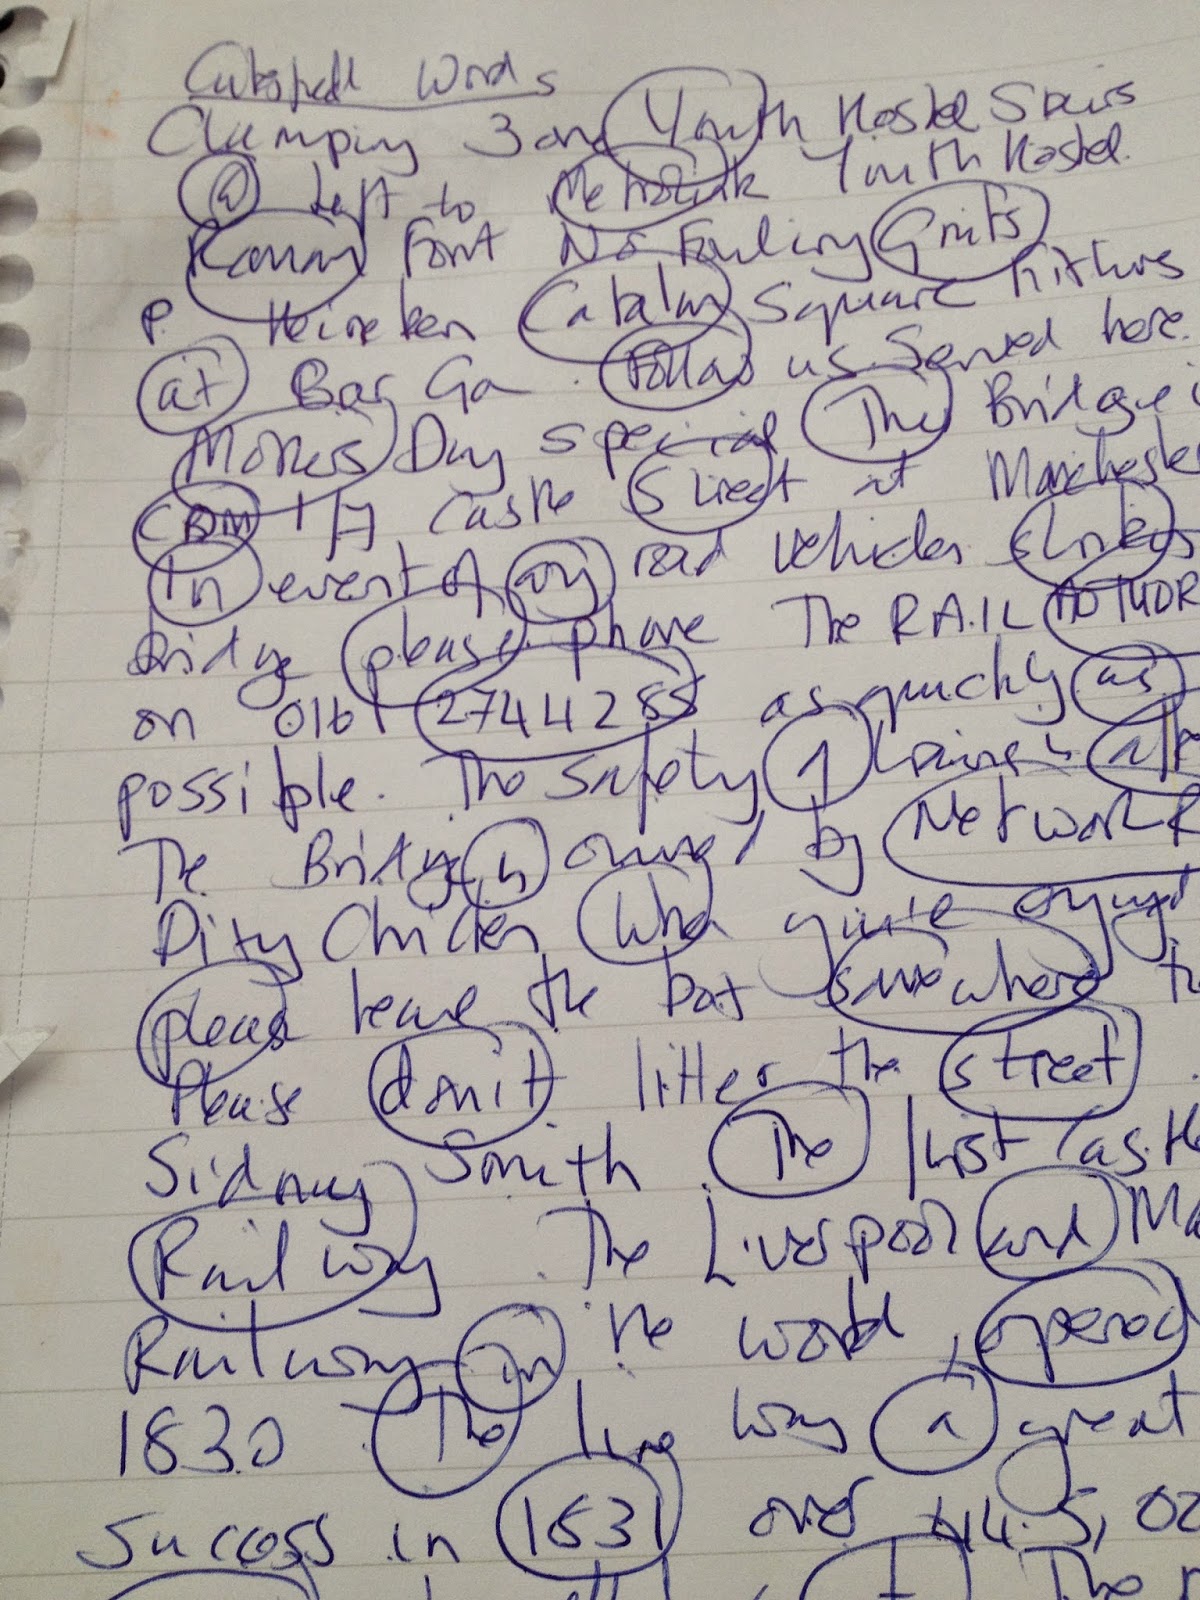 Words
Clamping Zone Youth Hostel Stairs
@ Left to Metrolink Youth Hostel.
Roman Fort No Fouling Grafts
P. Heineken Catalan Square
at Bar Ca. Follow us Served here.
Mothers Day special The Bridge
Castle Street at Manchester
In event of any road vehicles
bridge please phone The RAIL AUTHOR
on 0161 2744285 as quickly as
possible. The Safety 1
The Bridge is owned by Network R
Dirty Chicken When you've enjoyed
please leave the bat somewhere
Please don't litter the street.
Sidney Smith. The first Castle
Railway. The Liverpool and Ma
Railway in the world, opened
1830. The line way a great
Success in 1831 over 445,02
I The